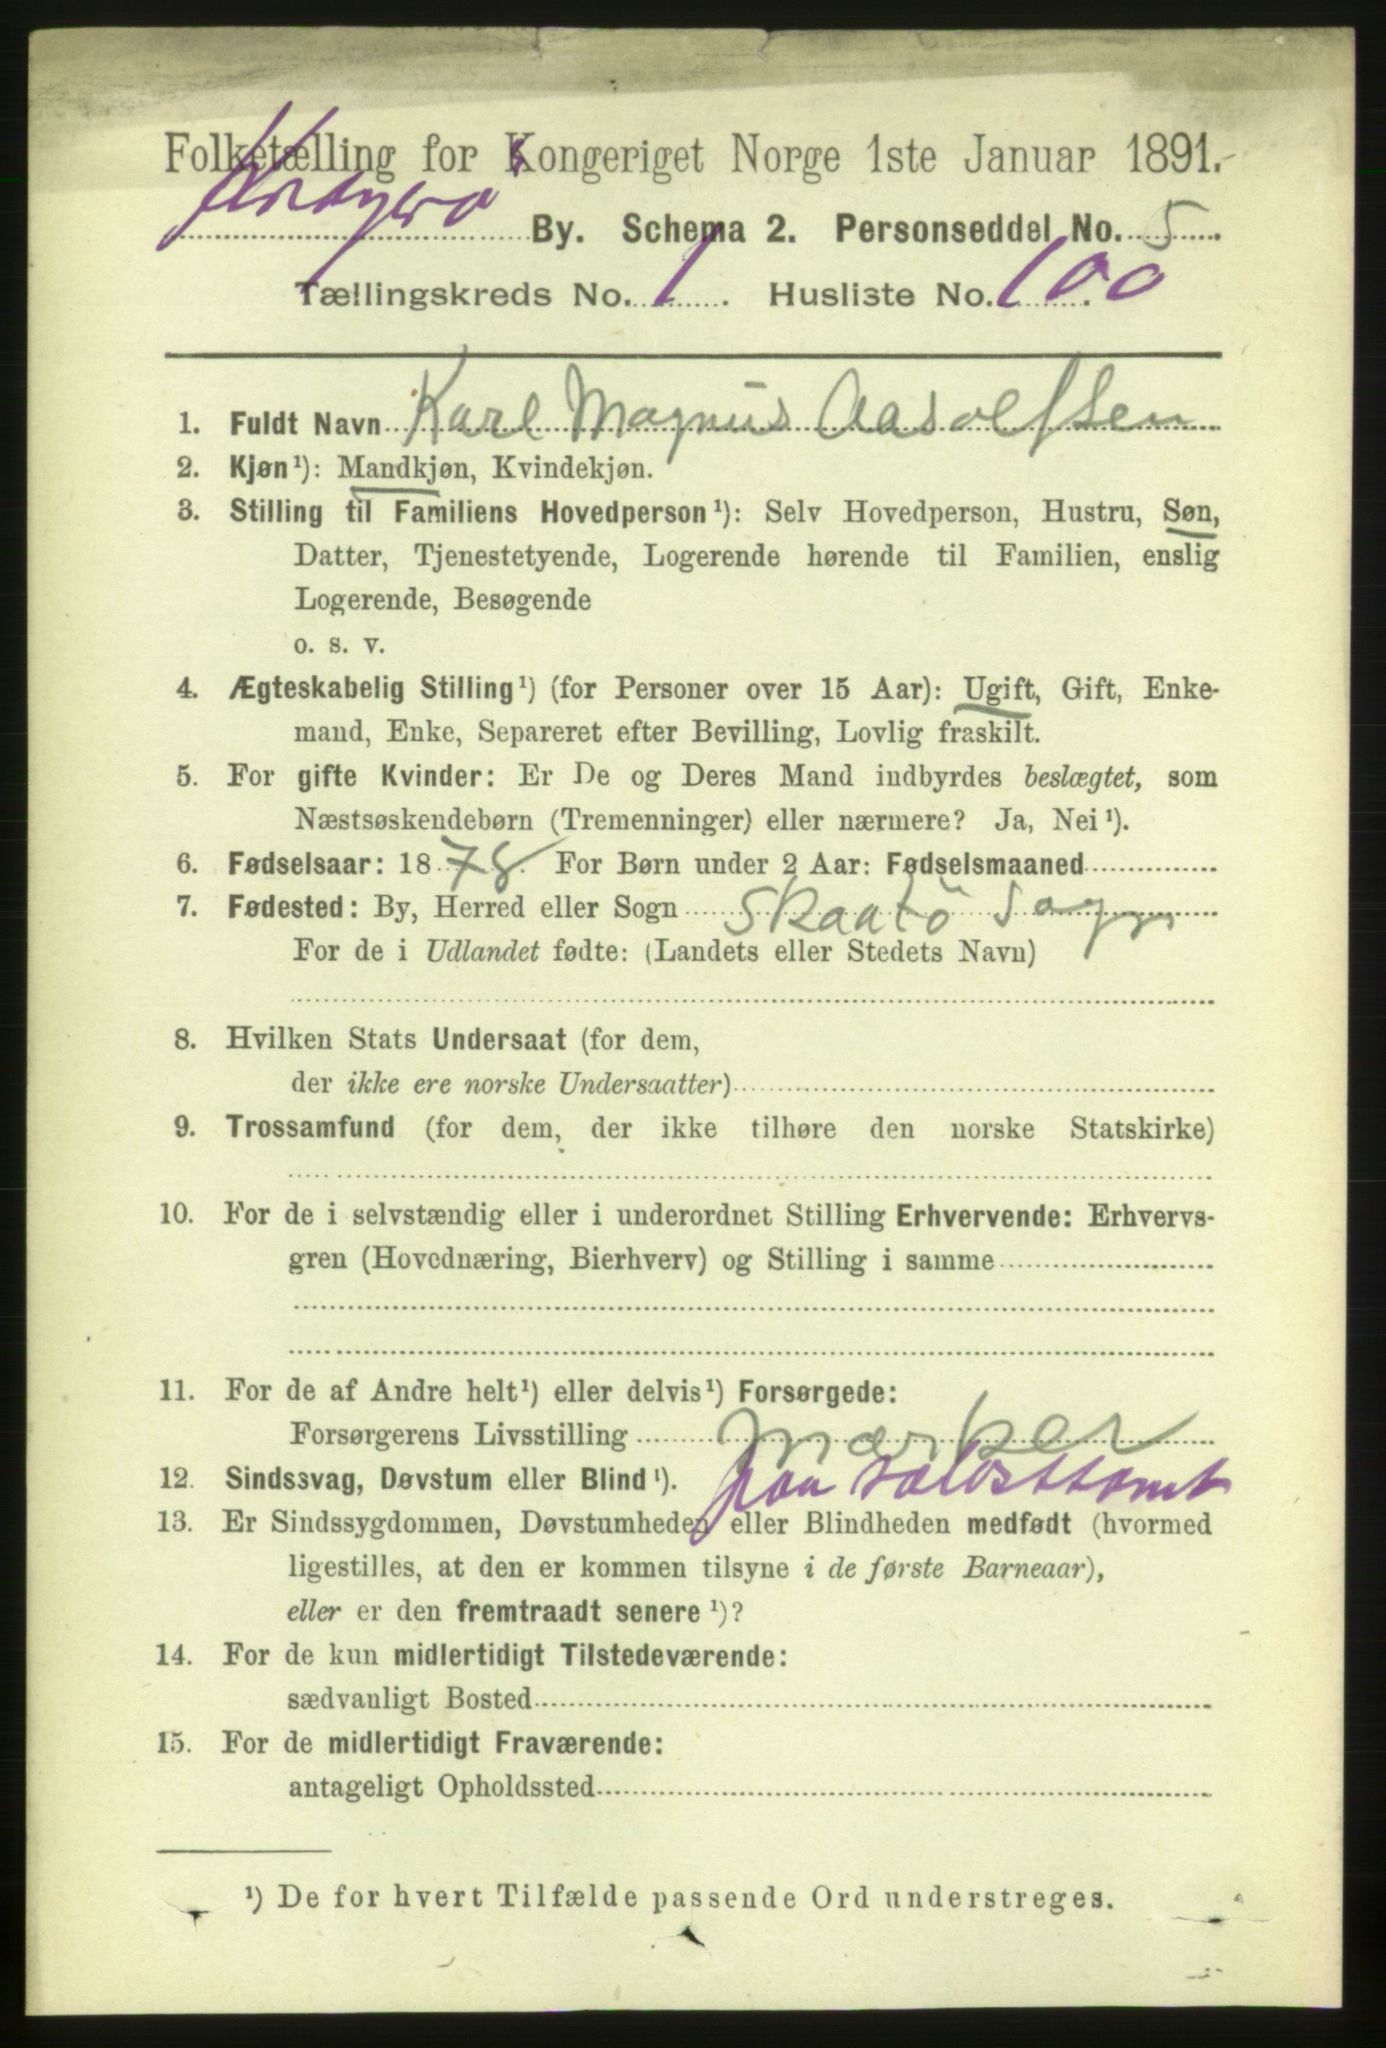 Folketælling for Kongeriget Norge 1ste Januar 1891.
Kragerø By. Schema 2. Personseddel No. 5.
Tællingskreds No. 1. Husliste No. 100.
1. Fuldt Navn Karl Magnus Aasolfsen
2. Kjøn¹): Mandkjøn, Kvindekjøn.
3. Stilling til Familiens Hovedperson¹): Selv Hovedperson, Hustru, Søn,
Datter, Tjenestetyende, Logerende hørende til Familien, enslig
Logerende, Besøgende
o. s. v.
4. Ægteskabelig Stilling¹) (for Personer over 15 Aar): Ugift, Gift, Enke-
mand, Enke, Separeret efter Bevilling, Lovlig fraskilt.
5. For gifte Kvinder: Er De og Deres Mand indbyrdes beslægtet, som
Næstsøskendebørn (Tremenninger) eller nærmere? Ja, Nei¹).
6. Fødselsaar: 1878. For Børn under 2 Aar: Fødselsmaaned
7. Fødested: By, Herred eller Sogn Skaatö Sogn
For de i Udlandet fødte: (Landets eller Stedets Navn)
8. Hvilken Stats Undersaat (for dem,
der ikke ere norske Undersaatter)
9. Trossamfund (for dem, der ikke tilhøre den norske Statskirke)
10. For de i selvstændig eller i underordnet Stilling Erhvervende: Erhvervs-
gren (Hovednæring, Bierhverv) og Stilling i samme
11. For de af Andre helt¹) eller delvis¹) Forsørgede:
Forsørgerens Livsstilling mærker
12. Sindssvag, Døvstum eller Blind¹). paa
13. Er Sindssygdommen, Døvstumheden eller Blindheden medfødt (hvormed
ligestilles, at den er kommen tilsyne i de første Barneaar),
eller er den fremtraadt senere¹)?
14. For de kun midlertidigt Tilstedeværende:
sædvanligt Bosted
15. For de midlertidigt Fraværende:
antageligt Opholdssted
¹) De for hvert Tilfælde passende Ord understreges.